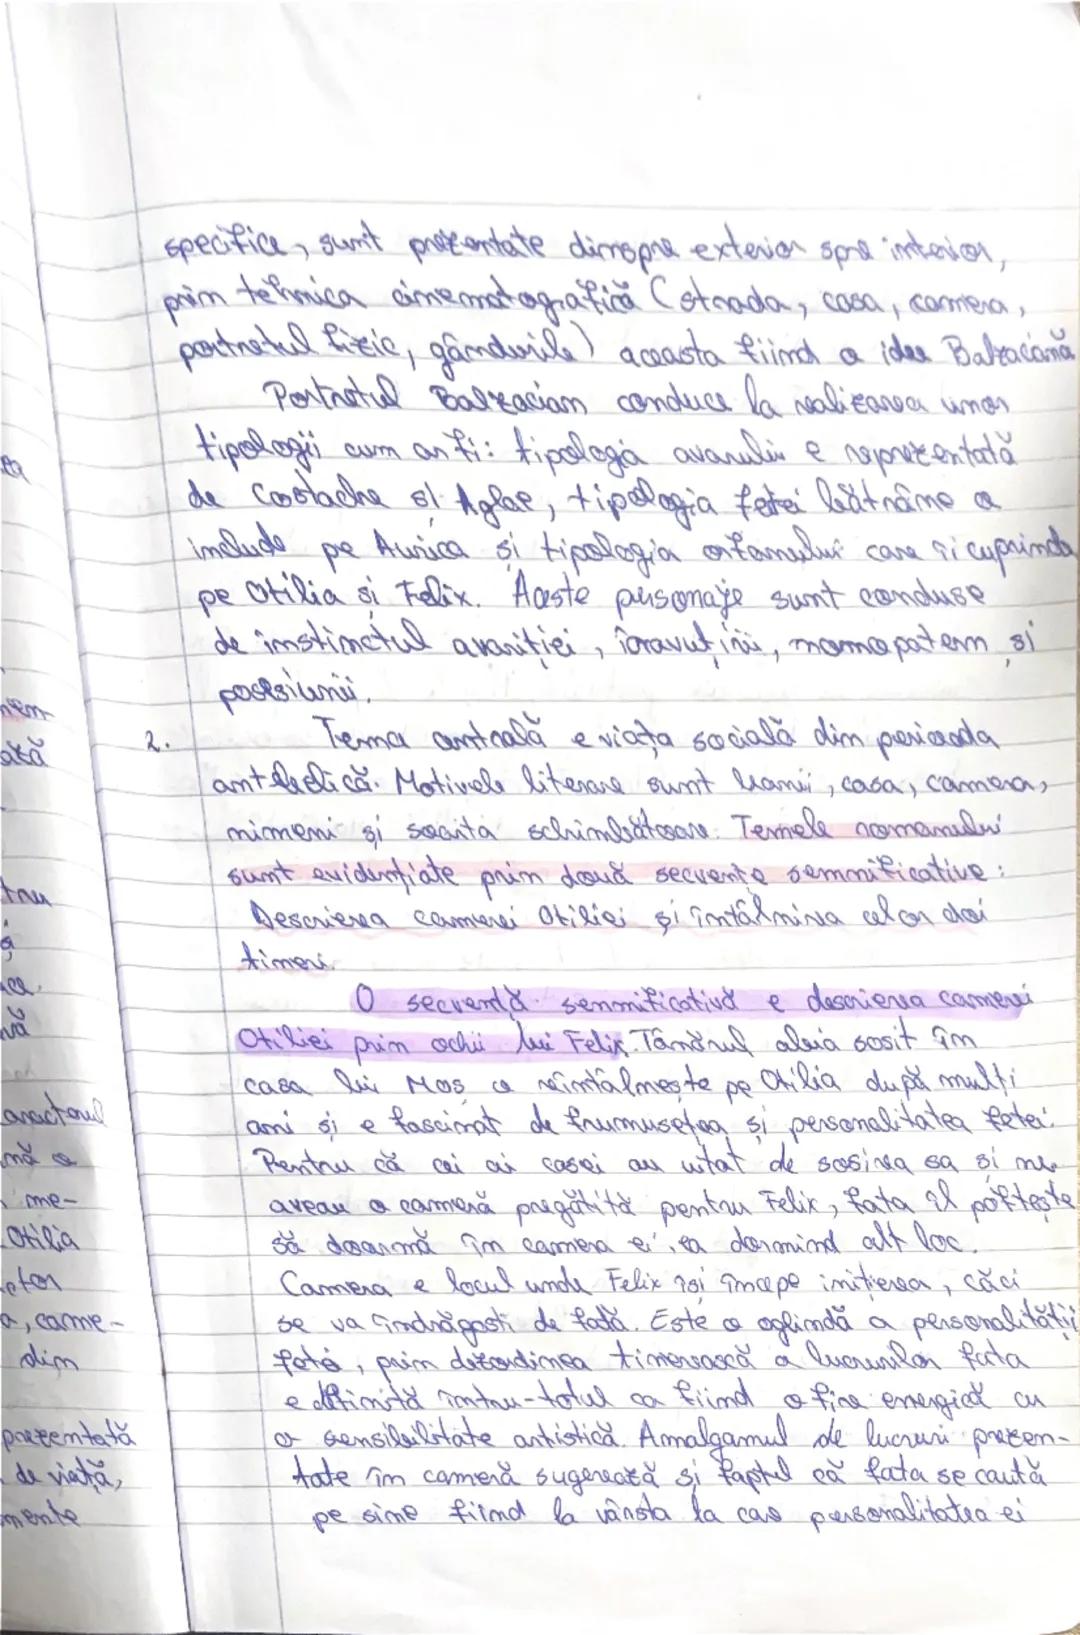 specifice, sunt prezentate dinspre exterior spre interior,
prin tehnica cinematografică (strada, casa, camera,
portretul fizic, gândurile) aceasta fiind o idee Balzaciană
Portretul Balzacian conduce la realizarea unor
tipologii cum ar fi: tipologia avarului e reprezentată
de Costache și Aglae, tipologia fetei bătrâne o
include pe Aurica și tipologia orfanului care îi cuprinde
pe Otilia și Felix. Aceste personaje sunt conduse
de instinctul avariției, și
posesiunii.
2. Tema centrală e viața socială din perioada
antebelică. Motivele literare sunt banii, casa, camera,
nimeni și soarta schimbătoare. Temele romanului
sunt evidențiate prin două secvențe semnificative:
Descrierea camerei Otiliei și întâlnirea celor doi
tineri.
O secvență semnificativă e descrierea camerei
Otiliei prin ochii lui Felix. Tânărul abia sosit în
casa lui Moș o reîntâlnește pe Otilia după mulți
ani și e fascinat de frumusețea și personalitatea fetei.
Pentru că cei ai casei au uitat de sosirea sa și nu
aveau o cameră pregătită pentru Felix, fata îl poftește
să doarmă în camera ei, ea dormind alt loc.
Camera e locul unde Felix își începe inițierea, căci
se va îndrăgosti de fată. Este o oglindă a personalității
fetei, prin dezordinea tinerească a lucrurilor fata
e definită întru-totul ca fiind o fire energică cu
o sensibilitate artistică. Amalgamul de lucruri prezen-
tate în cameră sugerează și faptul că fata se caută
pe sine fiind la vârsta la care personalitatea ei
ată
tru
vă
aractorul
me-
Otilia
a, came-
din
prezentată
de viață,
mente